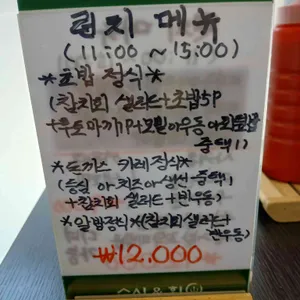 런치 메뉴
(11:00 ~ 15:00)
*초밥 정식*
(참치회 샐러드+초밥5P
+후토마끼1P+모밀 아 우동 아
중택1)
*돈까스 카레 정식*
(등심 아 치즈 아 생선 중택1
+참치회 샐러드+반우동)
*알밥정식*(참치회 샐러드+
반우동)
₩12,000